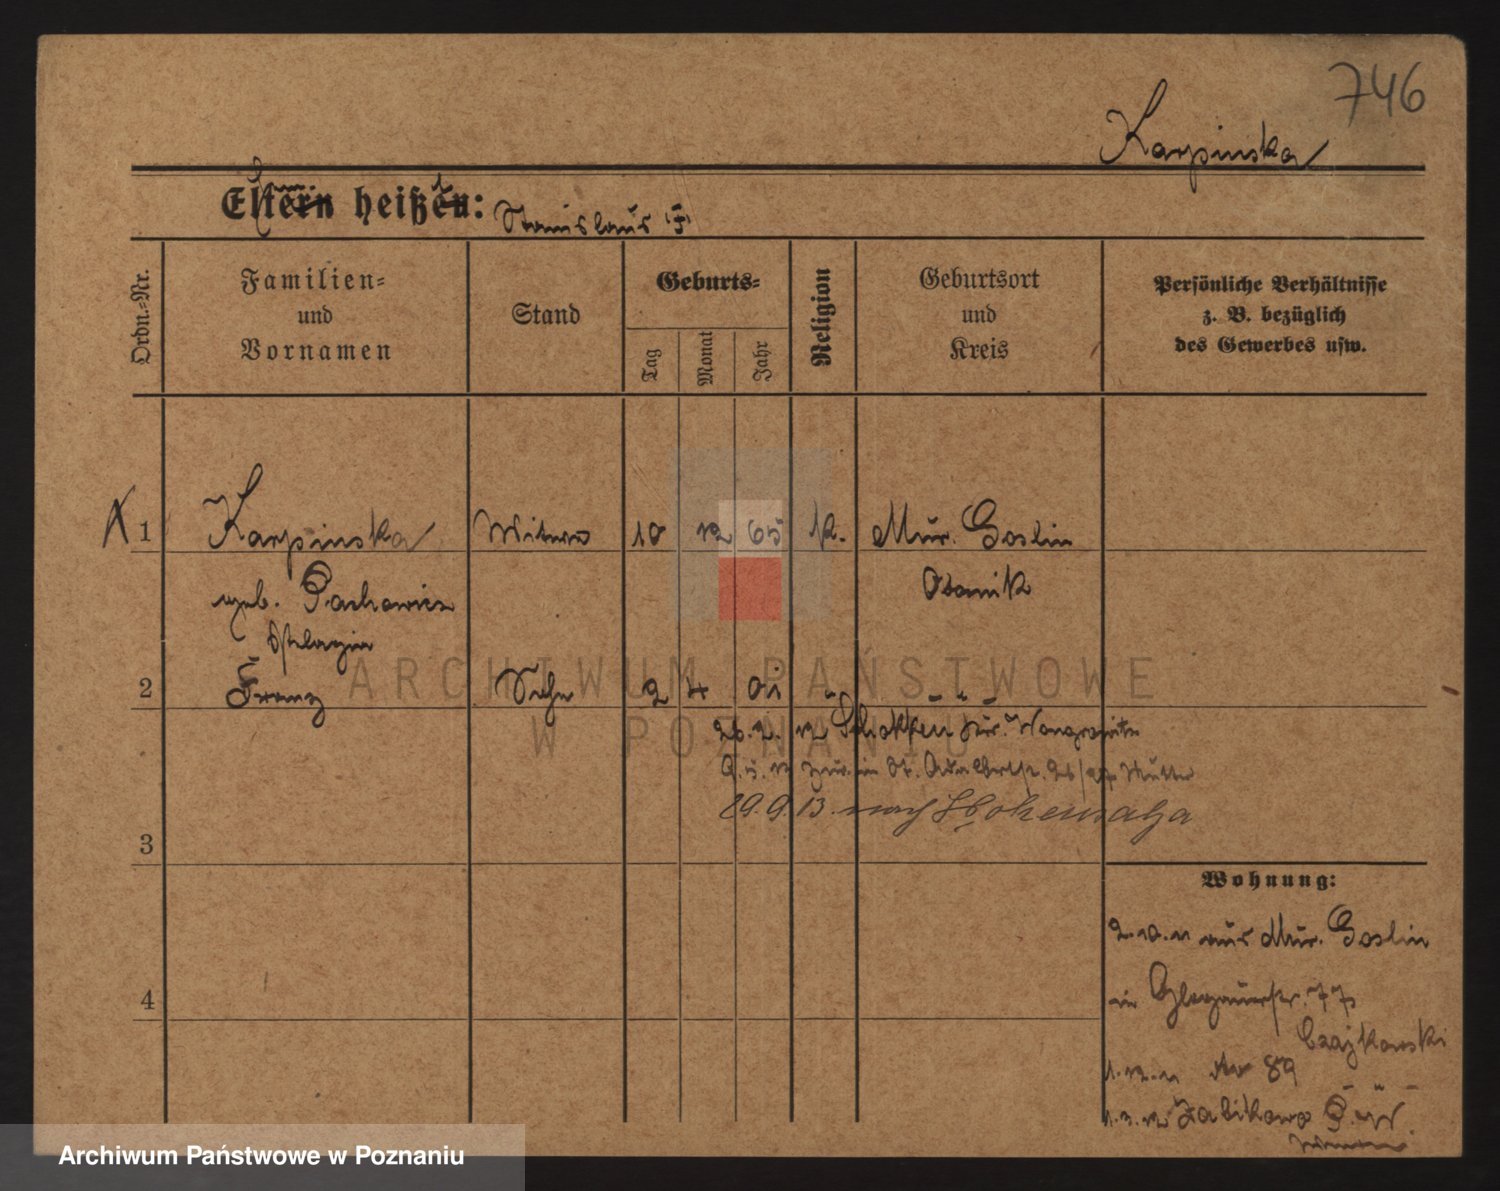 746
Karpinska
Eltern heißen: Stanislaus (†)
Ordn.-Nr.
Familien-
und
Vornamen
Stand
Geburts-
Tag
Monat
Jahr
Religion
Geburtsort
und
Kreis
Persönliche Verhältnisse
z. B. bezüglich
des Gewerbes usw.
1 Karpinska Witwe 10 12 65 k. Mur. Goslin
geb.
Obornik
2 Franz Sohn 2 4 01 " - " -
26.2.12 Schokken Kr. Wongrowitz
29.9.13. nach Hohensalza
3
Wohnung:
2.10.11 aus Mur. Goslin
in Glogauerstr. 77
Czajkowski
4
1.12.11 89
1.3.12 Zabikowo
ARCHIWUM PAŃSTWOWE
W POZNANIU
Archiwum Państwowe w Poznaniu